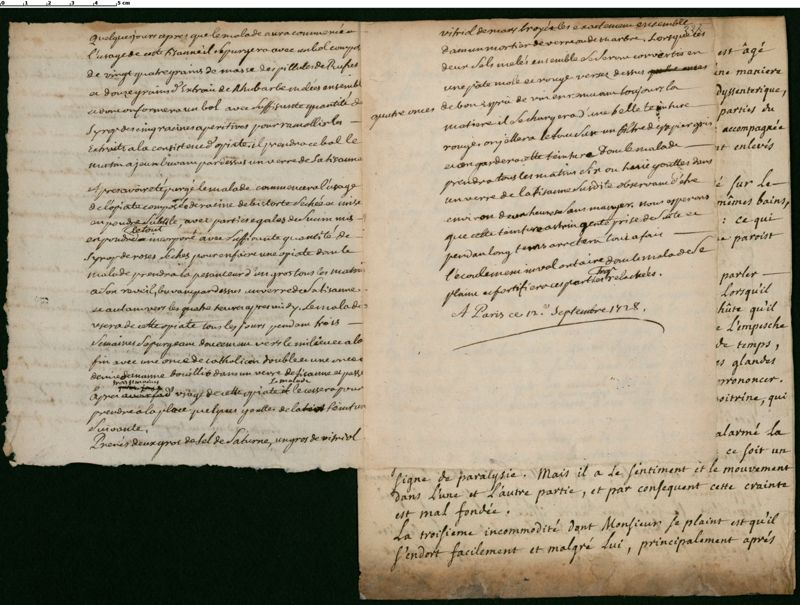 Quelques jours apres que le malade aura commencé a
l'usage de cette tisanne il se purgera avec un bol composé
de vingt quatre grains de masse des pillules de Rufus
a douze grains d'Extrait de Rhubarbe melées ensemble
et on en formera un bol avec suffisante quantité de
syrop des cinq racines aperitives pour ramollir les
Extraits a la consistence d'opiate, il prendra ce bol le
matin a jeun buvant par dessus un verre de sa tisanne
Apres avoir eté purgé le malade commencera l'usage
de l'opiate composé de racine de bistorte seches et mise
en poudre subtile, avec parties egales de Succin mis
en poudre le tout incorporé avec suffisante quantité de
syrop de roses seches pour en faire une opiate dont le
malade prendra la pesanteur d'un gros tous les matins
a son reveil, buvant par dessus un verre de sa tisanne
et autant vers les quatre heures apres midy. Le malade
usera de cette opiate tous les jours pendant trois
semaines se purgeant doucement vers le milieu et a la
fin avec une once de catholicon double et une once et
demie de manne bouillis dans un verre de tisanne et passé
apres usage de cette opiate le malade cessera pour
prendre a la place quelques gouttes de la teinture
suivante.
Prenés deux gros de sel de Saturne, un gros de vitriol
vitriol de mars broyés les exactement ensemble
dans un mortier de verre ou de marbre. Lorsque les
deux sels melés ensemble se seront convertis en
une pâte mole et rouge versés dessus
quatre onces de bon esprit de vin en remuant toujours la
matiere il se chargera d'une belle teinture
rouge, on jettera le tout sur un filtre de papier gris
et on gardera cette teinture dont le malade
prendra tous les matins six ou huit gouttes dans
un verre de la tisanne susdite observant d'être
environ deux heures sans manger. nous esperons
que cette teinture astringente prise de suite et
pendant longtems arretera tout a fait
l'écoulement involontaire dont le malade se
plaint et fortifiera ces parties trop relachées.
A Paris ce 12. Septembre 1728.
est âgé
une maniere
dyssenterique,
parties du
accompagnée
et enlevés
sur le
mêmes bains,
: ce qui
paroist
parler
Lorsqu'il
chûte qu'il
l'empische
de temps,
glandes
prononcer.
poitrine, qui
alarmé la
ce soit un
signe de paralysie. Mais il a le sentiment et le mouvement
dans l'une et l'autre partie, et par consequent cette crainte
est mal fondée.
La troisieme incommodité dont Monsieur se plaint est qu'il
s'endort facilement et malgré lui, principalement après